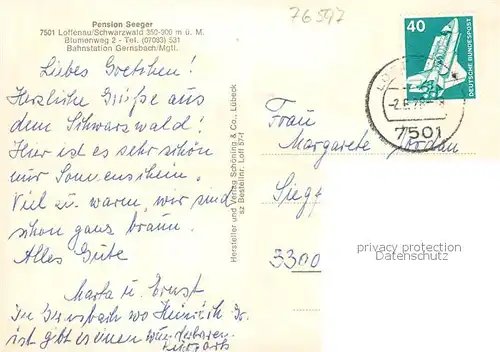 Pension Seeger
7501 Loffenau/Schwarzwald 350-900 m ü. M.
Blumenweg 2 - Tel. (07083) 531
Bahnstation Gernsbach/Mgtl.
76597
40
DEUTSCHE BUNDESPOST
7501
Liebes Gretchen!
Herzliche Grüße aus
dem Schwarzwald!
Hier ist es sehr schön
nur Sonnenschein.
Viel zu warm, wir sind
schon ganz braun.
Alles Gute
Marta u. Ernst
In Gernsbach wo Heinrich
ist gibt es einen wunderbaren
Kurpark
Hersteller und Verlag Schöning & Co., Lübeck
sz Bestellnr. Loff 57-1
Frau
Margarete Jordan
3300
privacy protection
Datenschutz